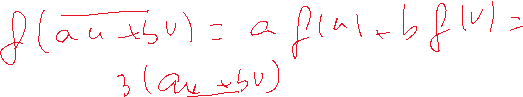 f(au+bv) = a f(u) + b f(v) =
3(au+bv)